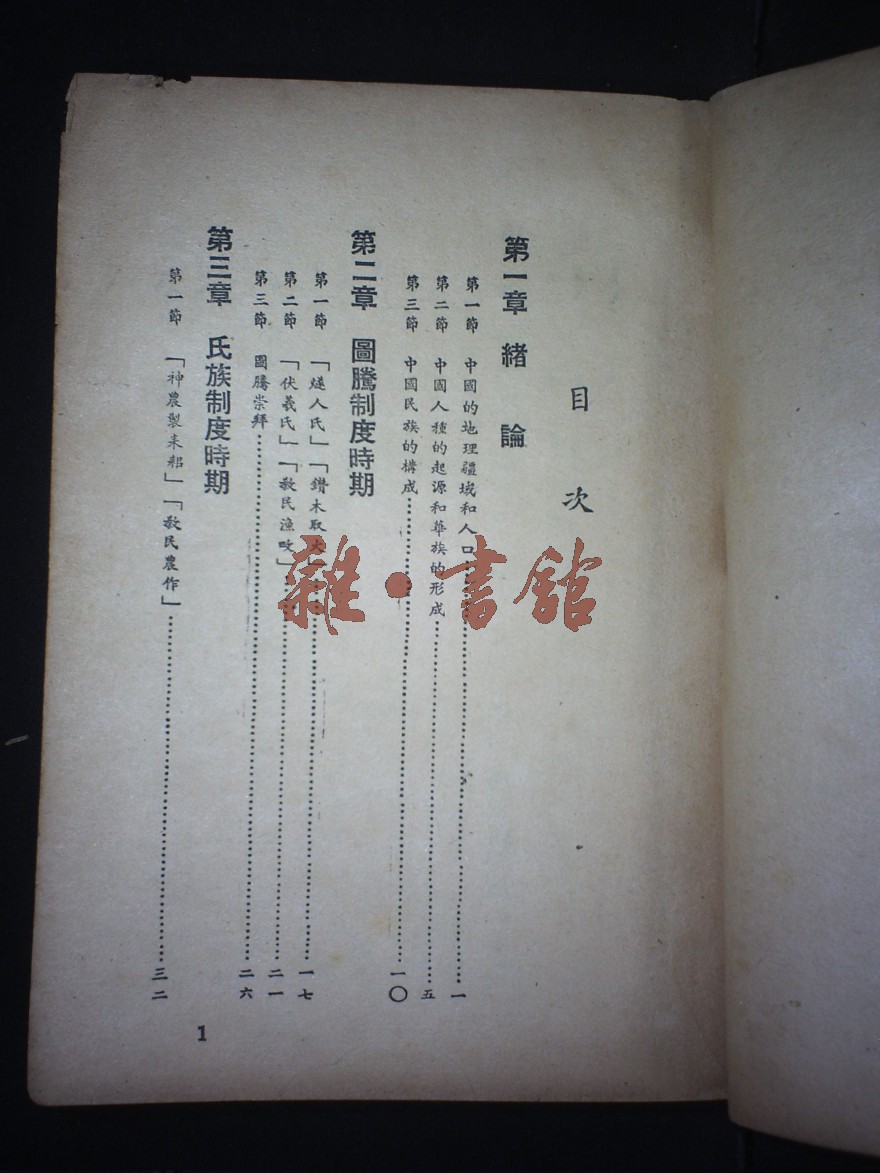 目次
第一章 緒論
第一節 中國的地理疆域和人口……一
第二節 中國人種的起源和華族的形成……五
第三節 中國民族的構成……一〇
第二章 圖騰制度時期
第一節 「燧人氏」「鑽木取火」……一七
第二節 「伏羲氏」「敎民漁畋」……二一
第三節 圖騰崇拜……二六
第三章 氏族制度時期
第一節 「神農製耒耜」「敎民農作」……三二
1
雜·書館